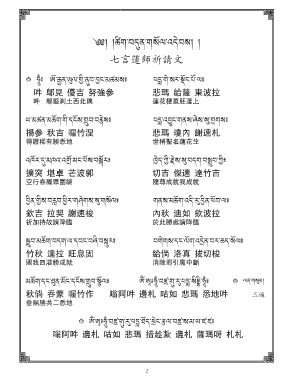 ༄༅། །ཚིག་བདུན་གསོལ་འདེབས། །
七言蓮師祈請文
ཧཱུྃ༔ ཨོ་རྒྱན་ཡུལ་གྱི་ནུབ་བྱང་མཚམས༔ པདྨ་གེ་སར་སྡོང་པོ་ལ༔
吽 鄔見 優吉 努強參 悲瑪 給薩 東波拉
吽 鄔仗剎土西北隅 蓮花梗莖胚蕊上
ཡ་མཚན་མཆོག་གི་དངོས་གྲུབ་བརྙེས༔ པདྨ་འབྱུང་གནས་ཞེས་སུ་གྲགས༔
揚參 秋吉 嘔竹涅 悲瑪 瓊內 謝速札
得證稀有勝悉地 世稱聖名蓮花生
འཁོར་དུ་མཁའ་འགྲོ་མང་པོས་བསྐོར༔ ཁྱེད་ཀྱི་རྗེས་སུ་བདག་བསྒྲུབ་ཀྱི༔
擴突 堪卓 芒波郭 切吉 傑速 達竹吉
空行眷屬眾圍繞 隨尊成就我成就
བྱིན་གྱིས་བརླབ་ཕྱིར་གཤེགས་སུ་གསོལ༔ གནས་མཆོག་འདི་རུ་བྱིན་ཕོབ་ལ༔
欽吉 拉契 謝速梭 內秋 迪如 欽波拉
祈加持故請降臨 於此勝處請降臨
སྒྲུབ་མཆོག་བདག་ལ་དབང་བཞི་བསྐུར༔ བགེགས་དང་ལོག་འདྲེན་བར་ཆད་སོལ༔
竹秋 達拉 旺息固 給倘 洛真 拔切梭
賜我四灌勝成就 消除邪引魔中斷
མཆོག་དང་ཐུན་མོང་དངོས་གྲུབ་སྩོལ༔ ཨོཾ་ཨཱཿཧཱུྃ་བཛྲ་གུ་རུ་པདྨ་སིདྡྷི་ཧཱུྃ༔
秋倘 吞蒙 嘔竹作 嗡阿吽 邊札 咕如 悲瑪 悉地吽 三遍
垂賜勝共二悉地
嗡阿吽 邊札 咕如 悲瑪 措趁紮 邊札 薩瑪呀 札札
2